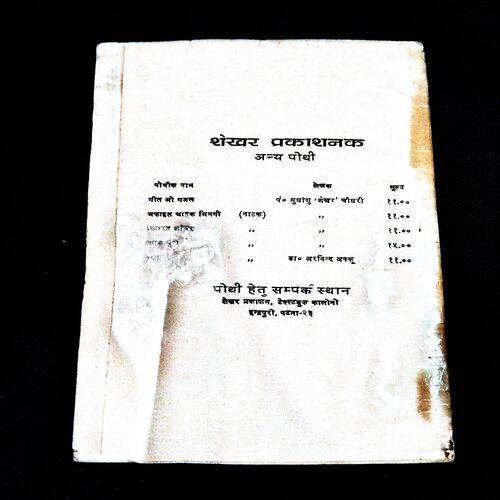 शेखर प्रकाशनक
अन्य पोथी
पोथीक नाम लेखक मूल्य
गीत ओ गजल पं० सुधांशु 'शेखर' चौधरी ११.००
लफाइत चाहक जिनगी (नाटक) ,, ११.००
,, ,, ११.००
,, ,, १५.००
,, डा० अरविन्द अक्कू ११.००
पोथी हेतु सम्पर्क स्थान
शेखर प्रकाशन, टेक्स्टबुक कालोनी
इन्द्रपुरी, पटना-२३